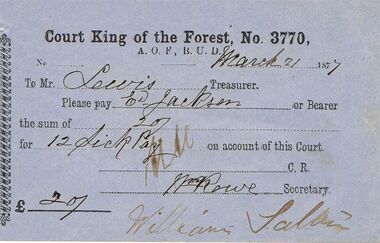 Court King of the Forest, No. 3770,
A. O. F., B. U. D.
No March 21 1877
To Mr. Lewis Treasurer.
Please pay Ed Jackson or Bearer
the sum of 20/
for 12 Sick Pay on account of this Court.
C. R.
Wm Rowe Secretary.
£ 20/
William